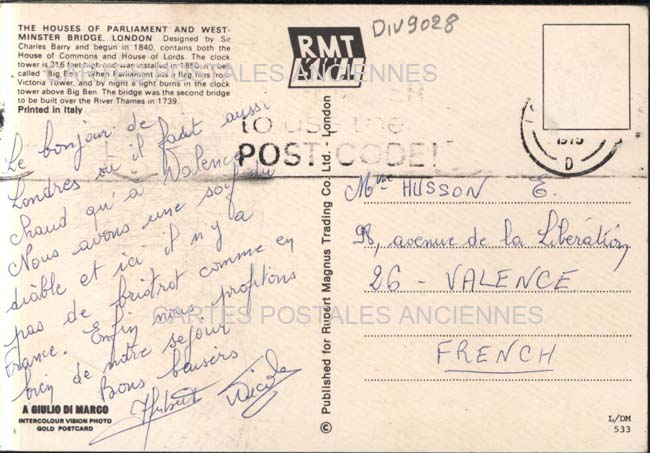 THE HOUSES OF PARLIAMENT AND WEST-
MINSTER BRIDGE, LONDON Designed by Sir
Charles Barry and begun in 1840, contains both the
House of Commons and House of Lords. The clock
tower is 316 feet high and was installed in
called "Big Ben". When Parliament sits a flag flies from
Victoria Tower, and by night a light burns in the clock
tower above Big Ben. The bridge was the second bridge
to be built over the River Thames in 1739.
Printed in Italy
RMT
DIV9028
CARTES POSTALES ANCIENNES
to use the
POST CODE!
1975
D
Le bonjour de
Londres où il fait aussi
chaud qu'à Valence
Nous avons une soif du
diable et ici il n'y a
pas de bristrot comme en
France. Enfin nous profitons
bien de notre séjour
Bons baisers
Hubert Nicole
A GIULIO DI MARCO
INTERCOLOUR VISION PHOTO
GOLD POSTCARD
© Published for Rupert Magnus Trading Co. Ltd. - London
Mme HUSSON E.
avenue de la Libération
26 - VALENCE
CARTES POSTALES ANCIENNES
FRENCH
L/DM
533